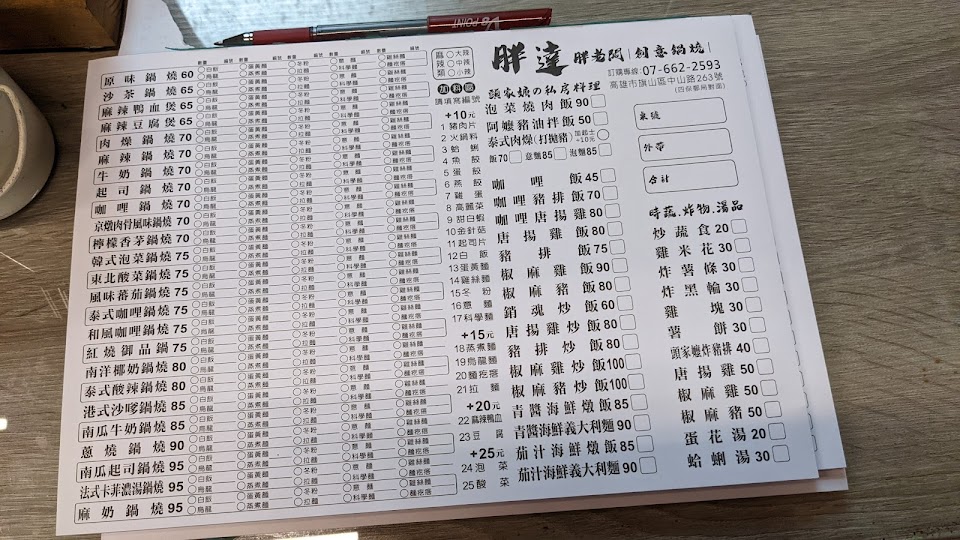 V5 POINT
胖達 胖老闆|創意鍋燒|
訂購專線:07-662-2593
高雄市旗山區中山路263號
(四保郵局對面)
數量 編號 數量 編號 數量 編號 數量 編號 數量 編號
原味鍋燒60
沙茶鍋燒65
麻辣鴨血煲65
麻辣豆腐煲65
肉燥鍋燒70
麻辣鍋燒70
牛奶鍋燒70
起司鍋燒70
咖哩鍋燒70
京燉肉骨風味鍋燒70
檸檬香茅鍋燒70
韓式泡菜鍋燒75
東北酸菜鍋燒75
風味蕃茄鍋燒75
泰式咖哩鍋燒75
和風咖哩鍋燒75
紅燒御品鍋75
南洋椰奶鍋燒80
泰式酸辣鍋燒80
港式沙嗲鍋燒85
南瓜牛奶鍋燒85
蔥燒鍋燒90
南瓜起司鍋燒95
法式卡菲濃湯鍋燒95
麻奶鍋燒95
○白飯 ○蛋黃麵 ○冬粉 ○意麵 ○雞絲麵
○烏龍 ○蒸煮麵 ○拉麵 ○科學麵 ○麵疙瘩
麻辣類
○大辣
○中辣
○小辣
加料區
請填寫編號
+10元
1 豬肉片
2 火鍋料
3 蛤蜊
4 魚餃
5 蛋餃
6 燕餃
7 雞蛋
8 高麗菜
9 甜白蝦
10 金針菇
11 起司片
12 白飯
13 蛋黃麵
14 雞絲麵
15 冬粉
16 意麵
17 科學麵
+15元
18 蒸煮麵
19 烏龍麵
20 麵疙瘩
21 拉麵
+20元
22 麻辣鴨血
23 豆腐
+25元
24 泡菜
25 酸菜
頭家娘の私房料理
泡菜燒肉飯90
阿嬤豬油拌飯50
泰式肉燥(打拋豬) 加起士+10元
飯70 意麵85 泡麵85
咖哩飯45
咖哩豬排飯70
咖哩唐揚雞80
唐揚雞飯80
豬排飯75
椒麻雞飯90
椒麻豬飯80
銷魂炒飯60
唐揚雞炒飯80
豬排炒飯80
椒麻雞炒飯100
椒麻豬炒飯100
青醬海鮮燉飯85
青醬海鮮義大利麵90
茄汁海鮮燉飯85
茄汁海鮮義大利麵90
桌號
外帶
合計
時蔬.炸物.湯品
炒蔬食20
雞米花30
炸薯條30
炸黑輪30
雞塊30
薯餅30
頭家嬤炸豬排40
唐揚雞50
椒麻雞50
椒麻豬50
蛋花湯20
蛤蜊湯30